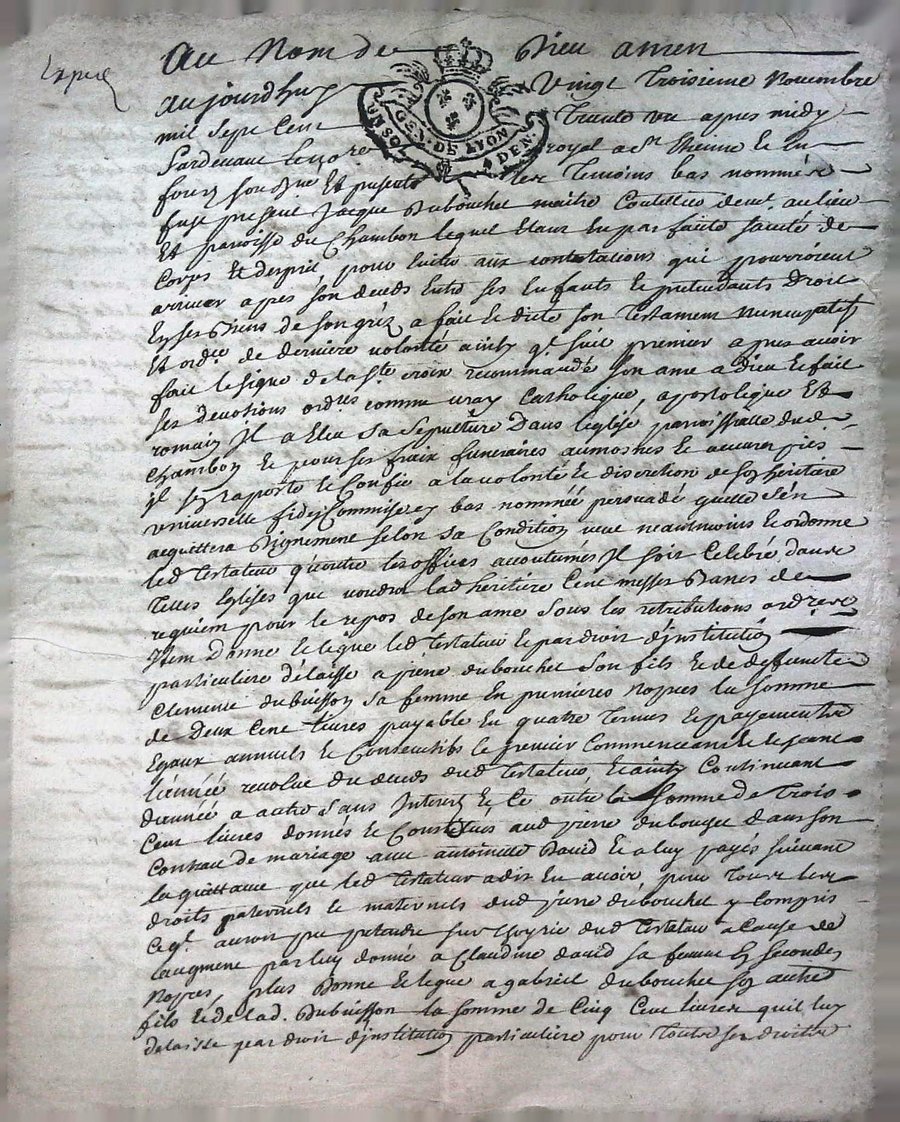 Expedié
Au Nom de Dieu amen
aujourdhuy Vingt Troisieme Novembre
mil Sept Cent Trante un apres midy
Pardevant le no.re royal a St Etienne le
GEN. DE LYON
UN SOL DEN.
forez soussigné Et presents les Temoins bas nommées
fust present Jacque Dubouchet maitre Coutellier demt. au lieu
Et paroisse du Chambon lequel Etant En parfaite santé de
Corps Et d'esprit, pour Eviter aux contestations qui pourroient
arriver apres son deceds Entre ses Enfants Et pretendants droit
En ses Biens de son gréz a fait Et dicté son Testament nuncupatif
Et ordre de derniere volonté ainsy qt. suit premier apres avoir
fait le signe de la Ste croix recommandé son ame a Dieu Et fait
ses devotions ordres comme vray Catholique, apostolique Et
romain Jl a Eleu sa sepulture Dans l'eglise parroissialle dud.
Chambon Et pour ses fraix funeraires aumosnes Et œuvres pies
Jl s'en raporte Et Confie a la volonté Et discretion de son héritiere
universelle fideyCommissere bas nommée persuadé quelle s'en
acquittera Dignement selon sa Condition veut neantmoins Et ordonne
led Testateur qu'outre les offices accoutumes Jl soit Celebré dans
Telles Eglises que voudra lad héritiere Cent messes Basses de
requiem pour le repos de son ame sous les retributions ordres
Jtem Donne Et legue led Testateur Et par droit d'jnstitution
particuliere délaisse a piere dubouchet son fils Et de deffuncte
Clemence dubuisson sa femme En premieres nopces la somme
de Deux Cent livres payable En quatre Termes Et payements
Egaux annuels Et Consecutifs le premier Commenceant
l'année revolue du deceds dud Testateur, Et ainsy Continuant
d'année a autre sans Interest Et Ce outre la somme de Trois
Cent livres donnés Et Constitués aud piere dubouchet dans son
Contrat de mariage avec antoinette David Et a luy payés suivant
la quittance que led Testateur a dit En avoir, pour Tous ses
droits paternels Et maternels dud piere dubouchet y Compris
Ce qt. auroit peu pretendre sur l'hoyrie dud Testateur a Cause de
l'augment par luy donné a Claudine david sa femme En secondes
nopces, plus Donne Et legue a gabriel dubouchet son autre
fils Et de lad. Dubuisson la somme de Cinq Cent livres qu'il luy
delaisse par droit d'jnstitution particuliere pour Toutes ses droitts